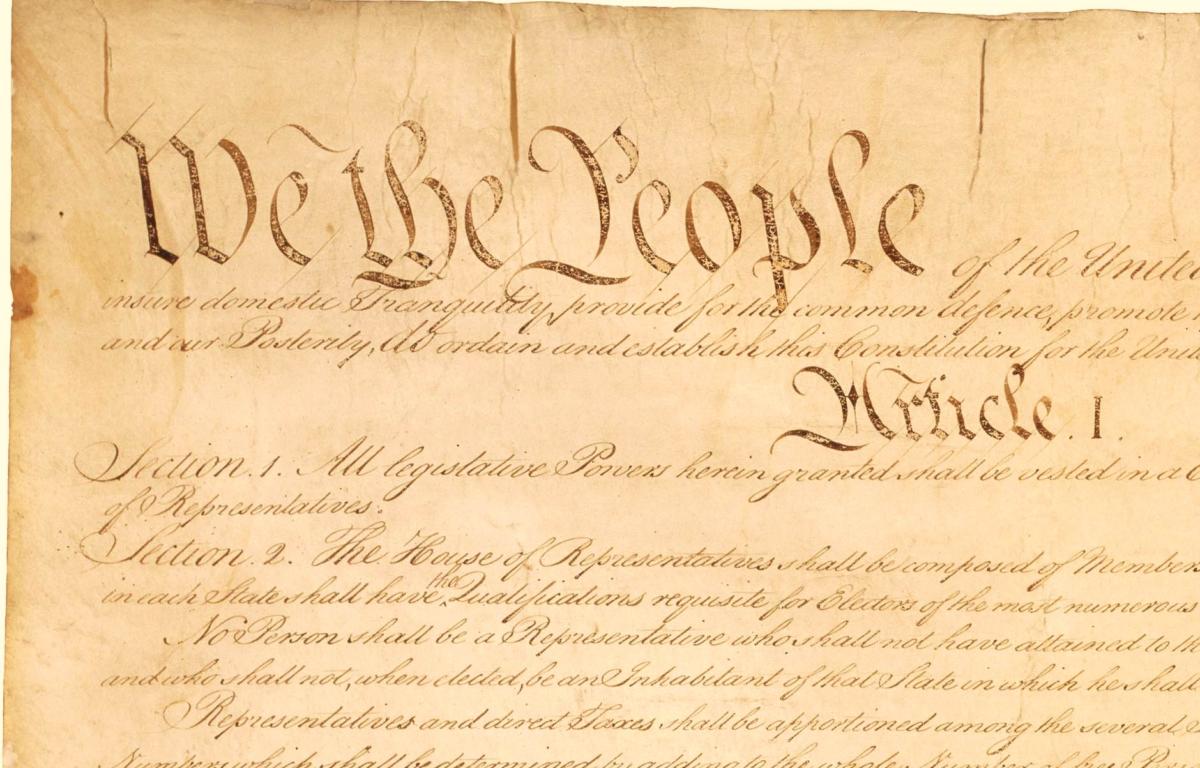 We the People of the United
insure domestic Tranquility, provide for the common defence, promote
and our Posterity, do ordain and establish this Constitution for the Unit
Article. I.
Section. 1. All legislative Powers herein granted shall be vested in a C
of Representatives.
Section. 2. The House of Representatives shall be composed of Members
in each State shall have the Qualifications requisite for Electors of the most numerous
No Person shall be a Representative who shall not have attained to th
and who shall not, when elected, be an Inhabitant of that State in which he shall
Representatives and direct Taxes shall be apportioned among the several
Numbers, which shall be determined by adding to the whole Number of free